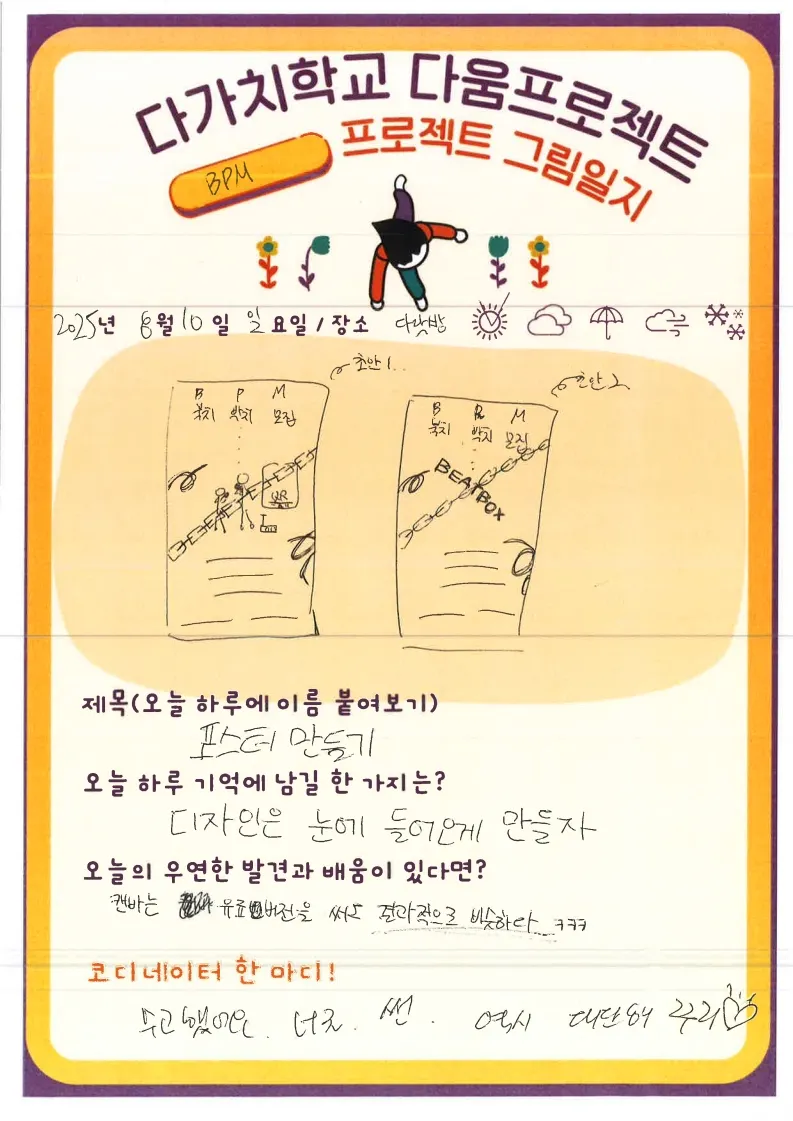 다가치학교 다움프로젝트
프로젝트 그림일지
BPM
2025년 8월 10일 일요일 / 장소 다락방
초안1..
B P M
북치 박치 모집
QR
초안2
B P M
북치 박치 모집
BEATBOX
제목(오늘 하루에 이름 붙여보기)
포스터 만들기
오늘 하루 기억에 남길 한 가지는?
디자인은 눈에 들어오게 만들자
오늘의 우연한 발견과 배움이 있다면?
캔바는 유료버전을 써도 전과적으로 비슷하다 ㅋㅋㅋ
코디네이터 한 마디!
수고했어요. 너츠. 썬. 역시 대단해 우리